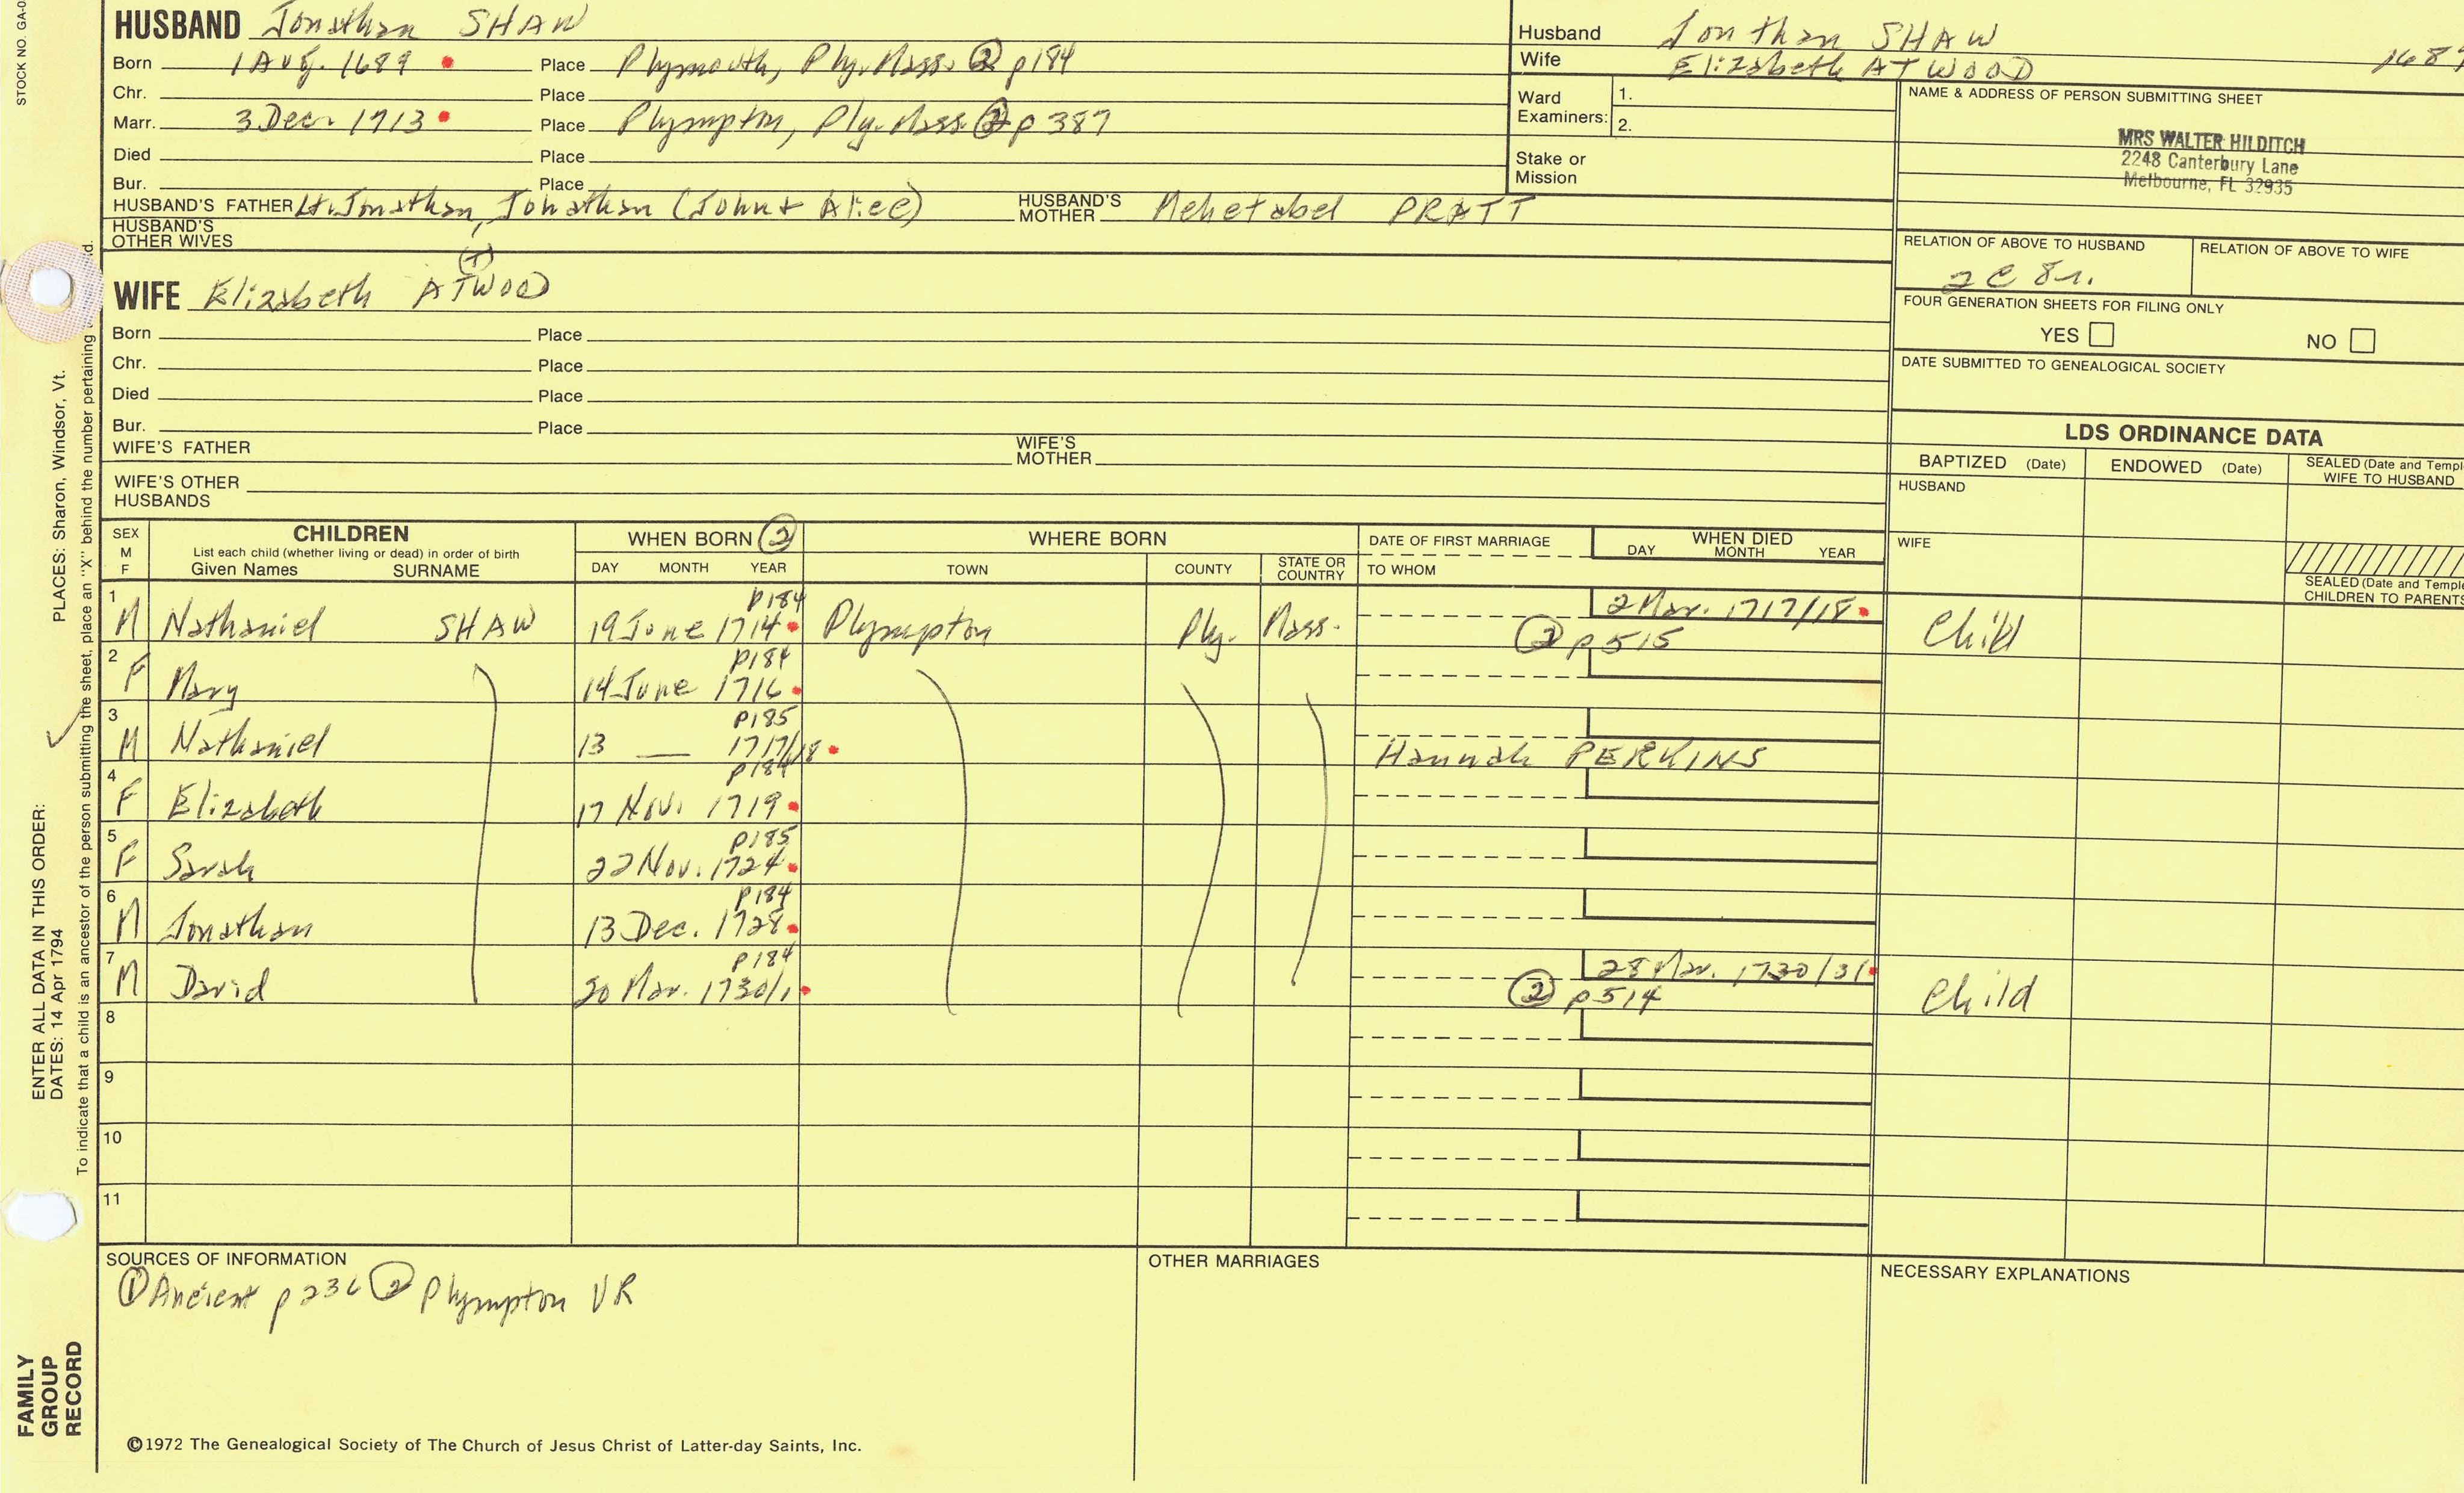 STOCK NO. GA-0
HUSBAND Jonathan SHAW
Born 1 Aug. 1689 Place Plymouth, Ply. Mass. ② p184
Chr. Place
Marr. 3 Dec. 1713 Place Plympton, Ply. Mass. ② p387
Died Place
Bur. Place
HUSBAND'S FATHER Lt. Jonathan, Jonathan (John + Alice) HUSBAND'S MOTHER Mehetabel PRATT
HUSBAND'S OTHER WIVES
(T)
WIFE Elizabeth ATWOOD
Born Place
Chr. Place
Died Place
Bur. Place
WIFE'S FATHER WIFE'S MOTHER
WIFE'S OTHER HUSBANDS
Husband Jonathan SHAW
Wife Elizabeth ATWOOD 168
Ward Examiners: 1.
2.
Stake or Mission
NAME & ADDRESS OF PERSON SUBMITTING SHEET
MRS WALTER HILDITCH
2248 Canterbury Lane
Melbourne, FL 32935
RELATION OF ABOVE TO HUSBAND RELATION OF ABOVE TO WIFE
2C 8r.
FOUR GENERATION SHEETS FOR FILING ONLY
YES NO
DATE SUBMITTED TO GENEALOGICAL SOCIETY
LDS ORDINANCE DATA
BAPTIZED (Date) ENDOWED (Date) SEALED (Date and Templ
WIFE TO HUSBAND
HUSBAND
WIFE
SEALED (Date and Temple
CHILDREN TO PARENTS
SEX M F CHILDREN WHEN BORN ② WHERE BORN DATE OF FIRST MARRIAGE WHEN DIED
List each child (whether living or dead) in order of birth DAY MONTH YEAR
Given Names SURNAME DAY MONTH YEAR TOWN COUNTY STATE OR COUNTRY TO WHOM
p184 2 Mar. 1717/18
1 M Nathaniel SHAW 19 June 1714 Plympton Ply. Mass. ② p515 Child
p184
2 F Mary 14 June 1716
p185
3 M Nathaniel 13 — 1717/18 Hannah PERKINS
p184
4 F Elizabeth 17 Nov. 1719
p185
5 F Sarah 22 Nov. 1724
p184
6 M Jonathan 13 Dec. 1728
p184 28 Mar. 1730/31
7 M David 20 Mar. 1730/1 ② p514 Child
8
9
10
11
SOURCES OF INFORMATION OTHER MARRIAGES NECESSARY EXPLANATIONS
① Ancient p236 ② Plympton VR
©1972 The Genealogical Society of The Church of Jesus Christ of Latter-day Saints, Inc.
FAMILY GROUP RECORD
ENTER ALL DATA IN THIS ORDER:
DATES: 14 Apr 1794 PLACES: Sharon, Windsor, Vt.
To indicate that a child is an ancestor of the person submitting the sheet, place an "X" behind the number pertaining